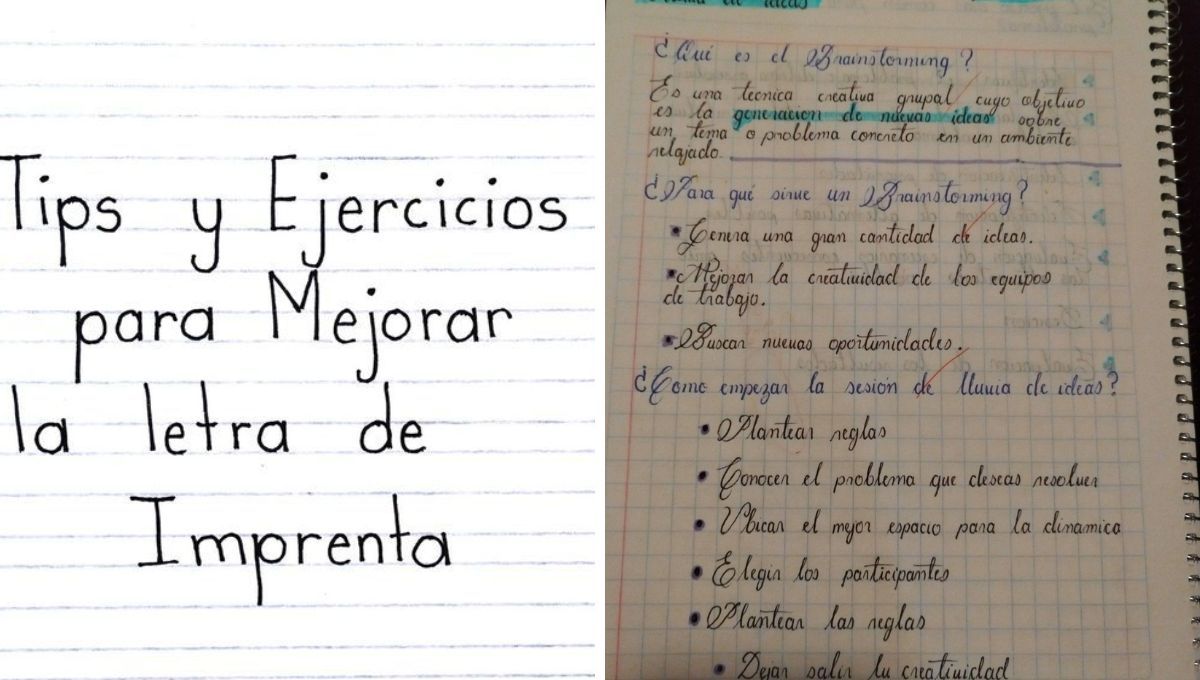 Tips y Ejercicios
para Mejorar
la letra de
Imprenta
¿Qué es el Brainstorming?
Es una tecnica creativa grupal cuyo objetivo
es la generacion de nuevas ideas sobre
un tema o problema concreto en un ambiente
relajado.
¿Para qué sirve un Brainstorming?
Genera una gran cantidad de ideas.
Mejorar la creatividad de los equipos
de trabajo.
Buscar nuevas oportunidades.
¿Como empezar la sesión de lluvia de ideas?
Plantear reglas
Conocer el problema que deseas resolver
Ubicar el mejor espacio para la dinamica
Elegir los participantes
Plantear las reglas
Dejar salir tu creatividad